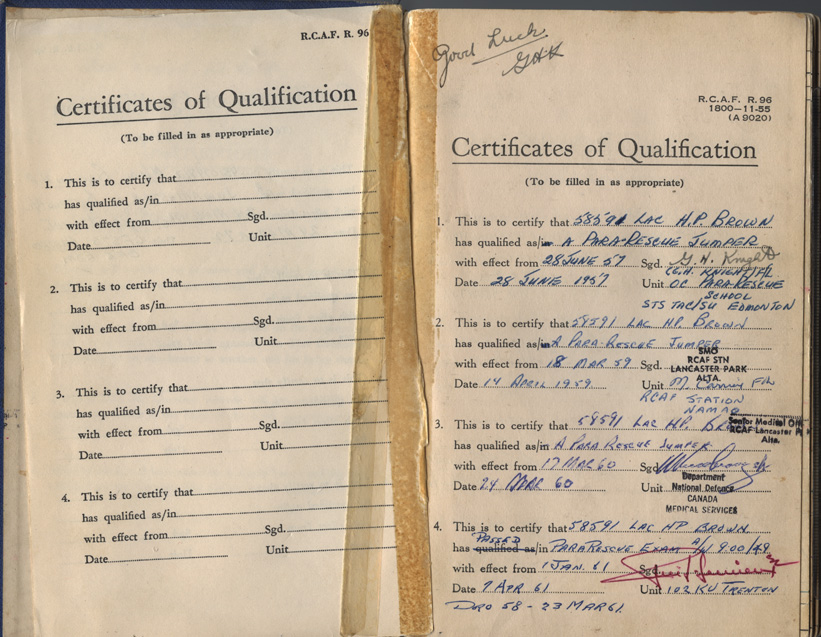 R.C.A.F. R. 96
Certificates of Qualification
(To be filled in as appropriate)
1. This is to certify that
has qualified as/in
with effect from Sgd.
Date Unit
2. This is to certify that
has qualified as/in
with effect from Sgd.
Date Unit
3. This is to certify that
has qualified as/in
with effect from Sgd.
Date Unit
4. This is to certify that
has qualified as/in
with effect from Sgd.
Date Unit
Good Luck
GHK
R.C.A.F. R. 96
1800-11-55
(A 9020)
Certificates of Qualification
(To be filled in as appropriate)
1. This is to certify that 58591 LAC H.P. BROWN
has qualified as/in A PARA-RESCUE JUMPER
with effect from 28 JUNE 57 Sgd. G. H. Knight
(G.H. KNIGHT) F/L
Date 28 JUNE 1957 Unit OC PARA-RESCUE
SCHOOL
STS TAC/SU EDMONTON
2. This is to certify that 58591 LAC HP. BROWN
has qualified as/in A PARA-RESCUE JUMPER
SMO
RCAF STN
with effect from 18 MAR 59 Sgd.
LANCASTER PARK
ALTA.
Date 14 APRIL 1959 Unit
RCAF STATION
NAMAO
3. This is to certify that 58591 LAC HP.
Senior Medical
RCAF Lancaster
Alta.
has qualified as/in A PARA RESCUE JUMPER
with effect from 17 MAR 60 Sgd
Department
Date 24 MAR 60 Unit National Defence
CANADA
MEDICAL SERVICES
4. This is to certify that 58591 LAC HP BROWN
PASSED
has qualified as/in PARARESCUE EXAM A/W 9.00/49
with effect from 1 JAN. 61 Sgd.
Date 7 APR 61 Unit 102 KU TRENTON
DRO 58 - 23 MAR 61.